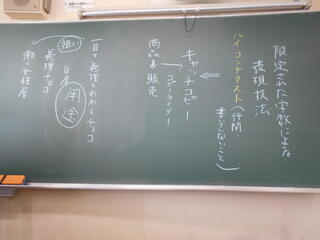 限定された字数による
表現技法
ハイ・コンテクスト(行間・
書いていないこと)
キャッチコピー
コピーライター
商品 販売
一目で義理とわかるチョコ
用途
狙い
義理チョコ
働く女性層